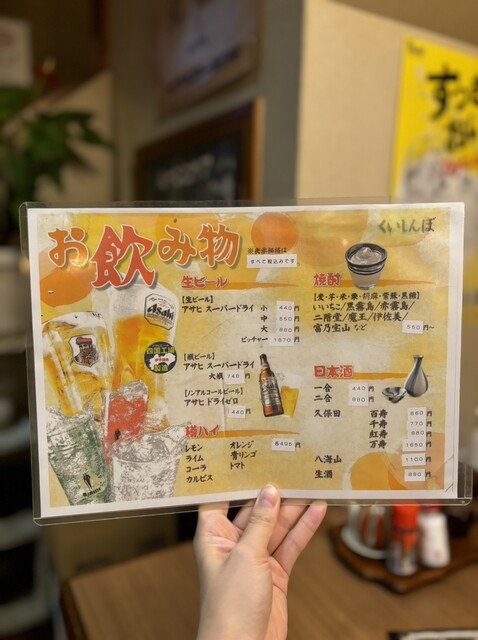 くいしんぼ
お飲み物
※表示価格は
すべて税込みです
生ビール
【生ビール】
アサヒ スーパードライ 小 440円
中 550円
大 880円
ピッチャー 1870円
【瓶ビール】
アサヒ スーパードライ
大瓶 748円
【ノンアルコールビール】
アサヒ ドライゼロ
440円
酎ハイ
各495円
レモン オレンジ
ライム 青リンゴ
コーラ トマト
カルピス
焼酎
いいちこ/黒霧島/赤霧島/
二階堂/魔王/伊佐美/
富乃宝山 など 550円~
日本酒
一合 440円
二合 880円
久保田 百寿 660円
千寿 770円
紅寿 880円
万寿 1650円
八海山 1100円
生酒 880円
Asahi
四国工場
製造